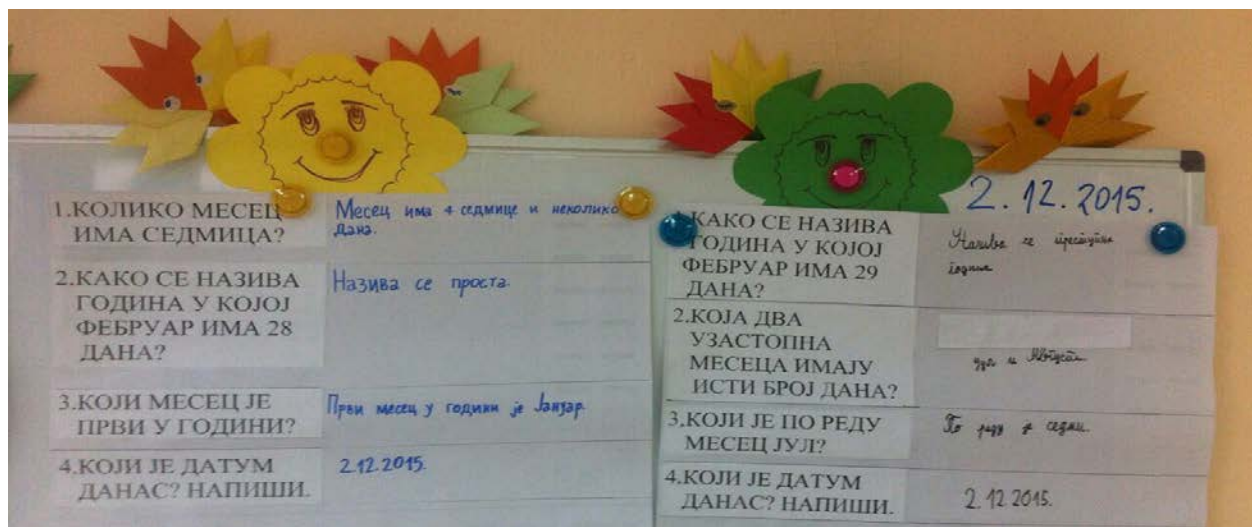 1.КОЛИКО МЕСЕЦ
ИМА СЕДМИЦА?
Месец има 4 седмице и неколико
дана.
2.КАКО СЕ НАЗИВА
ГОДИНА У КОЈОЈ
ФЕБРУАР ИМА 28
ДАНА?
Назива се проста.
3.КОЈИ МЕСЕЦ ЈЕ
ПРВИ У ГОДИНИ?
Први месец у години је Јануар.
4.КОЈИ ЈЕ ДАТУМ
ДАНАС? НАПИШИ.
2.12.2015.
2.12.2015.
КАКО СЕ НАЗИВА
ГОДИНА У КОЈОЈ
ФЕБРУАР ИМА 29
ДАНА?
Назива се преступна
година.
2.КОЈА ДВА
УЗАСТОПНА
МЕСЕЦА ИМАЈУ
ИСТИ БРОЈ ДАНА?
и Август.
3.КОЈИ ЈЕ ПО РЕДУ
МЕСЕЦ ЈУЛ?
По реду је седми.
4.КОЈИ ЈЕ ДАТУМ
ДАНАС? НАПИШИ.
2.12.2015.